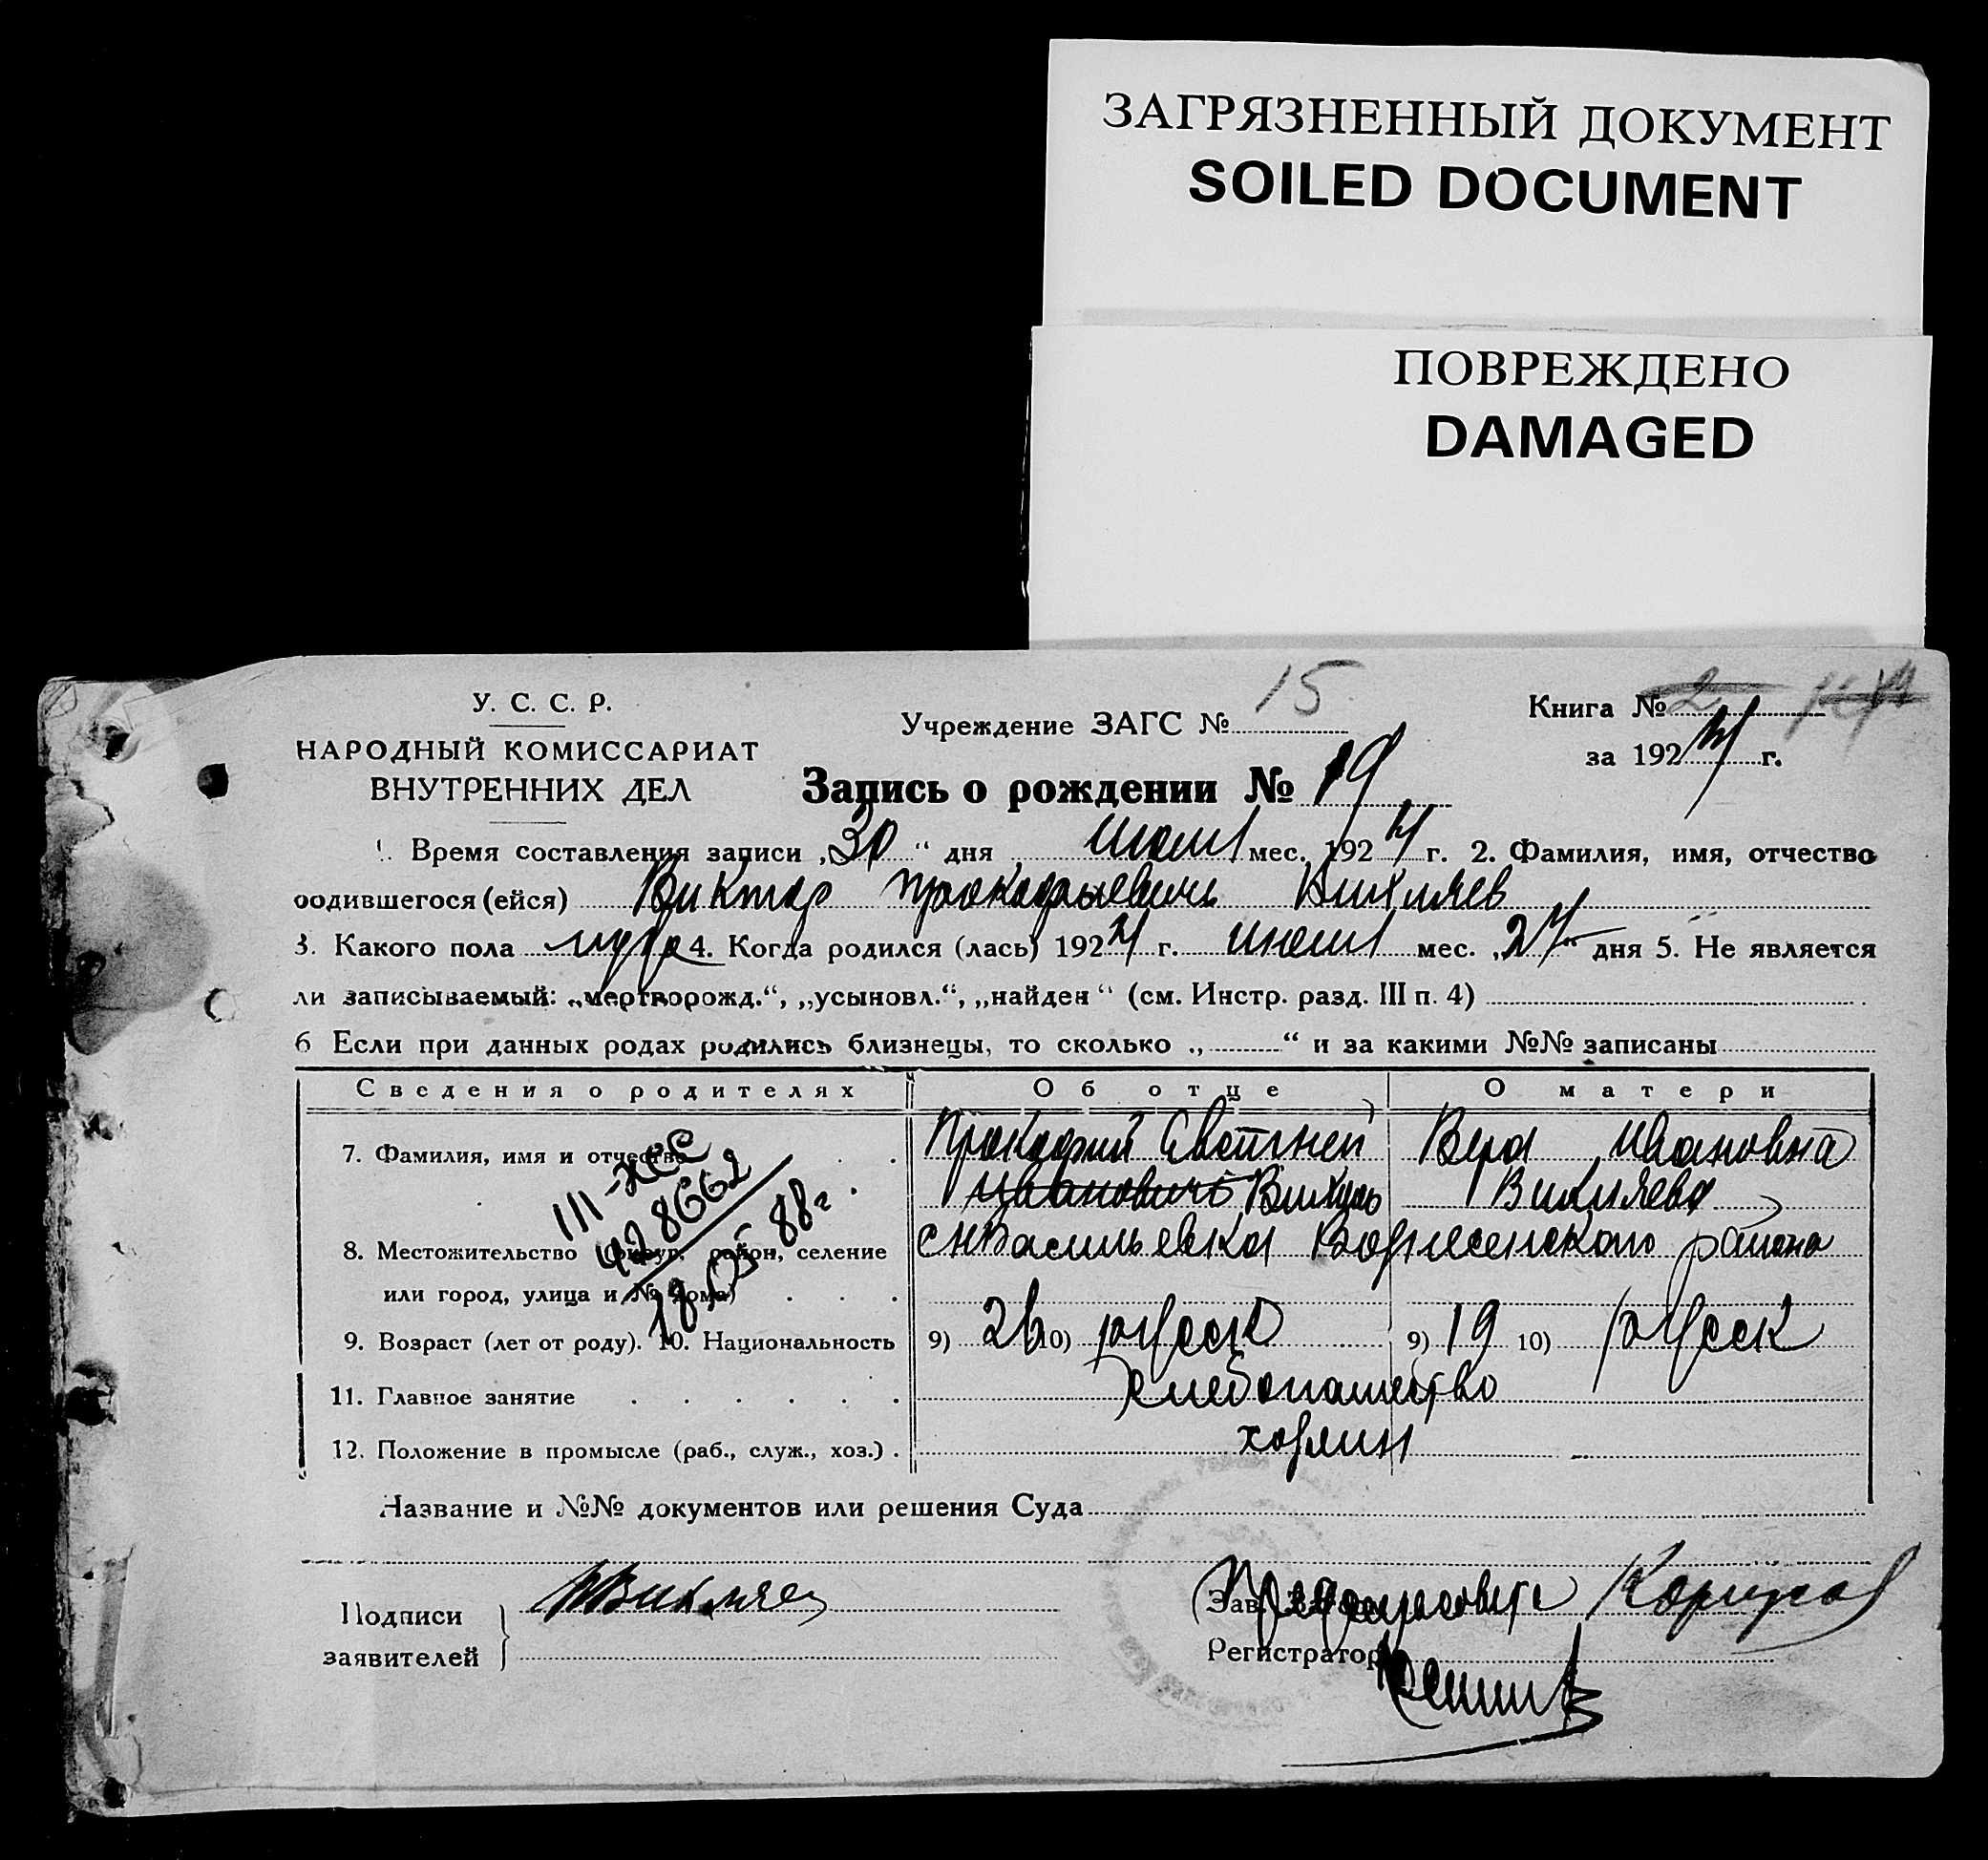 ЗАГРЯЗНЕННЫЙ ДОКУМЕНТ
SOILED DOCUMENT
ПОВРЕЖДЕНО
DAMAGED
У. С. С. Р.
НАРОДНЫЙ КОМИССАРИАТ
ВНУТРЕННИХ ДЕЛ
Учреждение ЗАГС № 15
Книга № 2
за 192 г.
Запись о рождении № 19
Время составления записи „30“ дня мес. 192 г. 2. Фамилия, имя, отчество
родившегося (ейся) Виктор Прокофьевичь Вихляев
3. Какого пола 4. Когда родился (лась) 192 г. мес. „27“ дня 5. Не является
ли записываемый: „мертворожд.“, „усыновл.“, „найден“ (см. Инстр. разд. III п. 4)
6 Если при данных родах родились близнецы, то сколько „ “ и за какими №№ записаны
Сведения о родителях Об отце О матери
7. Фамилия, имя и отчество Прокофий Вера Ивановна
Ивановичь Вихляева
III-ЖС
428662
18.05 88г
8. Местожительство (округ, район, селение Васильевка Вознесенского района
или город, улица и № дома)
9. Возраст (лет от роду). 10. Национальность 9) 26 10) русск 9) 19 10) русск
11. Главное занятие Хлебопашество
12. Положение в промысле (раб., служ., хоз.) хозяин
Название и №№ документов или решения Суда
Подписи
заявителей Вихляев
Зав.
Регистратор